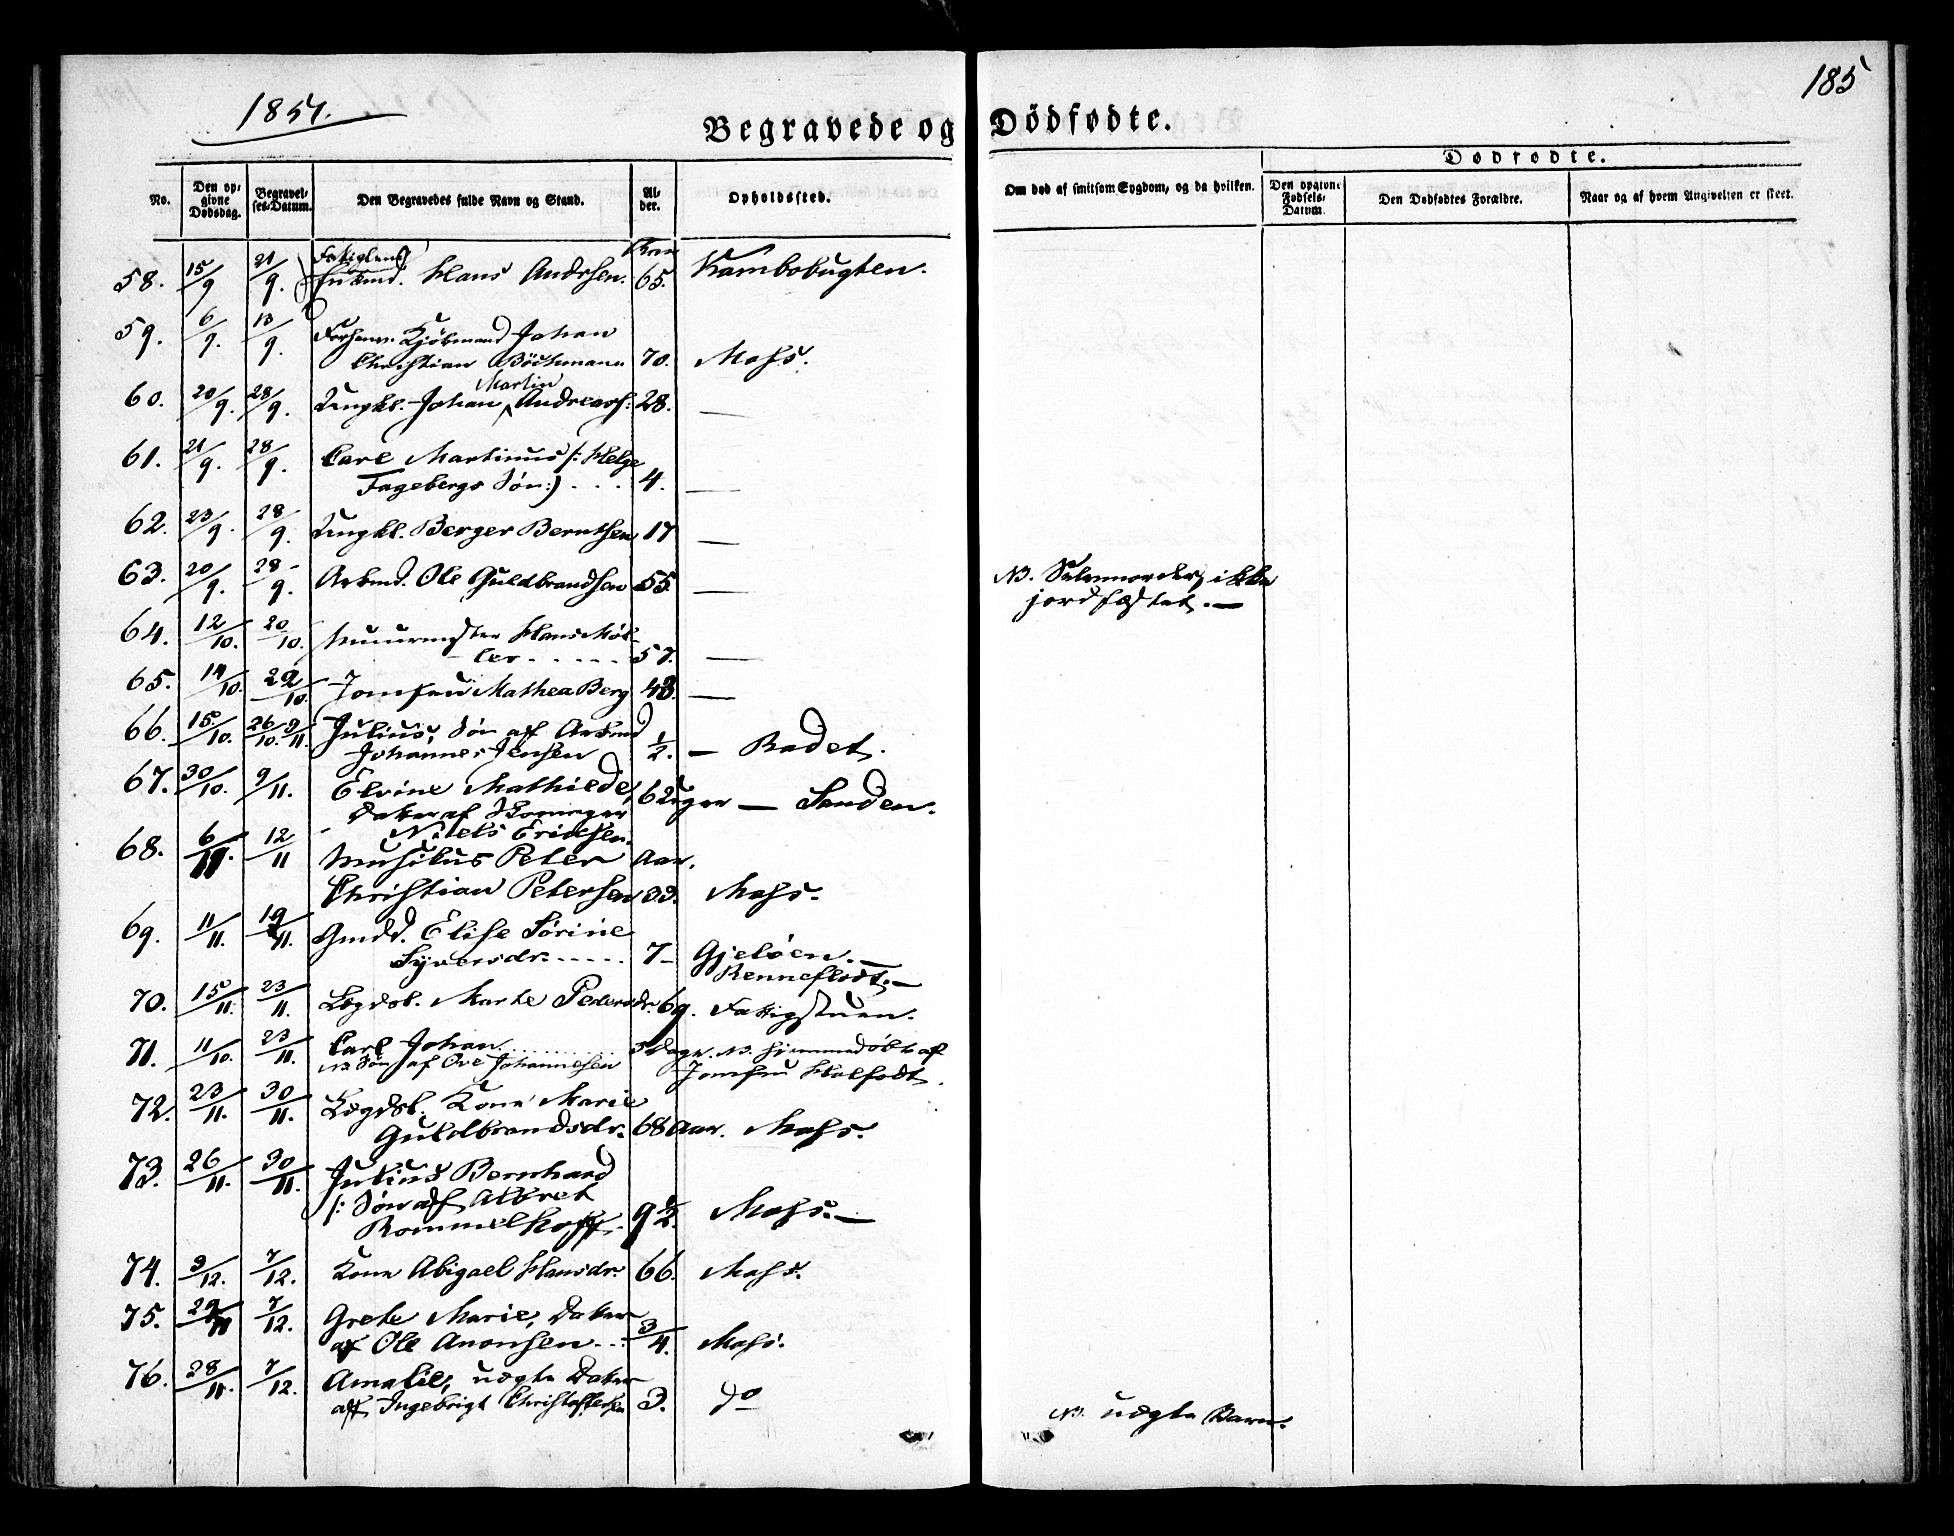 185
1851.
Begravede og Dødfødte.
Dødfødte.
No.
Den op-
givne
Dødsdag.
Begravel-
ses-Datum.
Den Begravedes fulde Navn og Stand.
Al-
der.
Opholdssted.
Om død af smitsom Sygdom, og da hvilken.
Den opgivne
Fødsels-
Datum.
Den Dødfødtes Forældre.
Naar og af hvem Angivelsen er skeet.
Fatiglem
58. 15/9 21/9. Hans Andersen. 65. Kambobugten.
59. 6/9. 13/9. Kjøbmand Johan
Christian Böchmann 70. Mofs.
Martin
60. 20/9. 28/9. Ungkl. Johan Andreasf: 28. —
61. 21/9. 28/9. Carl Martinus /: Helge
Fagebergs Søn:) . . . 4. —
62. 23/9. 28/9. Ungkl. Berger Berntsen 17 —
63. 20/9. 28/9. Arbmd. Ole Guldbrandsen 55. — NB. Selvmorder, ikke
jordfæstet. —
64. 12/10. 20/10. Muurmester Hans Møl-
ler - - - - - 57. —
65. 14/10. 22/10. Jomfru Mathea Berg 43. —
66. 15/10. 26/10. 9/11. Julius, Søn af Arbmd
Johannes Jensen 1/2. — Radet.
67. 30/10. 9/11. Elvine Mathilde, 6 Uger — Sanden.
Datter af Skomager
Niels Erichsen.
68. 6/11. 12/11 Musikus Peter Aar.
Christian Petersen 33. Mofs.
69. 11/11. 19/11. Gmdd. Elise Sørine
Syversdr. - - - - - 7 - Gjeløen. —
Renneflodt. —
70. 15/11. 23/11. Lægdsl. Marte Pedersdr. 69. Fattigstuen.
71. 11/10. 23/11. Carl Johan . . . . . Dage. NB. hjemmedøbt af
NB. Søn af Ole Johannesen Jomfru Holfodt.
72. 23/11. 30/11. Lægdsl. Kone Marie
Guldbrandsdr. 68 Aar. Mofs.
73. 26/11. 30/11. Julius Bernhard
/: Søn af Albret
Rommelhoff. 9 1/2. Mofs. —
74. 3/12. 7/12. Kone Abigael Hansdr. 66. Mofs.
75. 29/11 7/12. Grete Marie, Datter
af Ole Anonsen . . 3/4. Mofs.
76. 28/11. 7/12. Amalie, uægte Datter
af Ingebrigt Christoffersen 3. do NB. uægte Barn.